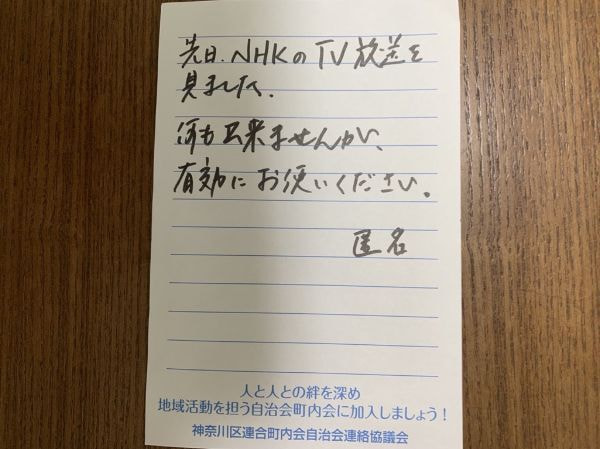 先日、NHKのTV放送を
見ました。
何も出来ませんが、
有効にお使いください。
匿名
人と人との絆を深め
地域活動を担う自治会町内会に加入しましょう！
神奈川区連合町内会自治会連絡協議会